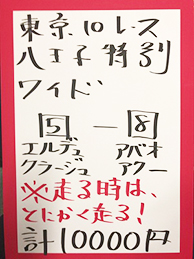 東京10レース
八王子特別
ワイド
5 ― 8
エルデュ アバオ
クラージュ アクー
※走る時は、
とにかく走る!
計10000円